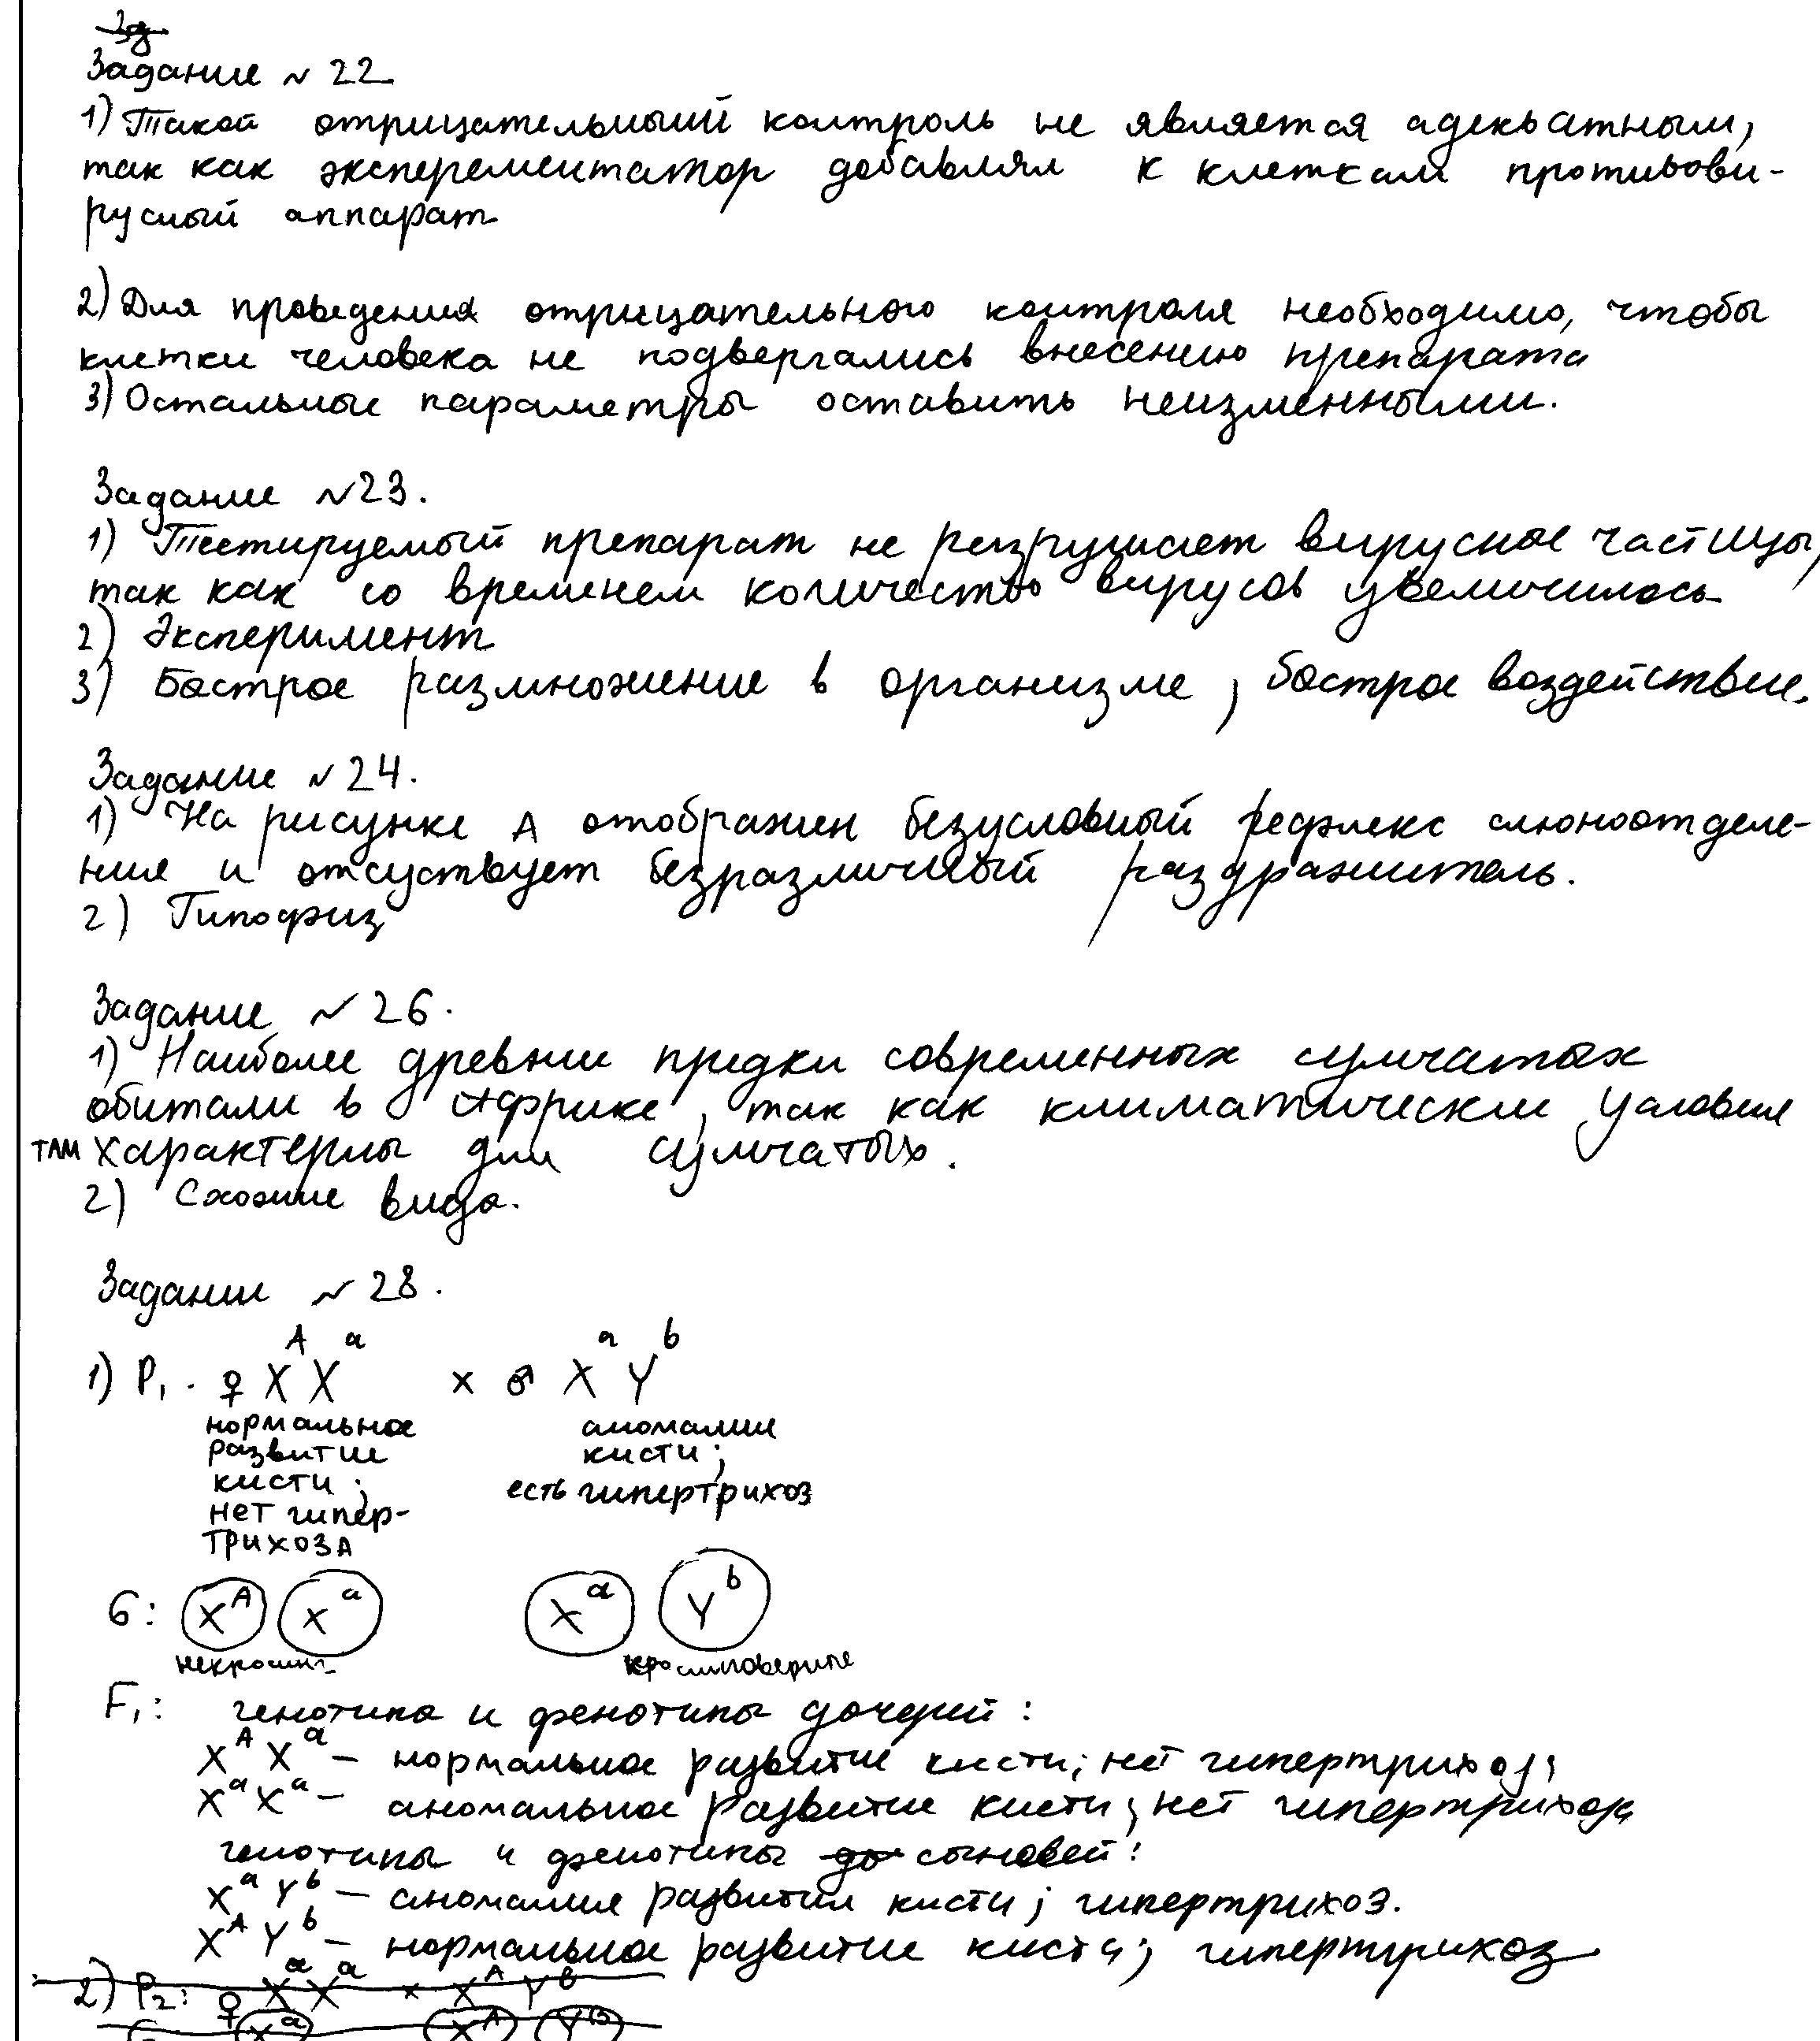 Зд
Задание № 22
1) Такой отрицательный контроль не является адекватным,
так как эксперементатор добавлял к клеткам противови-
русный аппарат
2) Для проведения отрицательного контроля необходимо, чтобы
клетки человека не подвергались внесению препарата
3) Остальные параметры оставить неизменными.
Задание №23.
1) Тестируемый препарат не разрушает вирусные частицы,
так как со временем количество вирусов увеличилось
2) Эксперимент
3) Быстрое размножение в организме, быстрое воздействие.
Задание №24.
1) На рисунке А отображен безусловный рефлекс слюноотделе-
ния и отсуствует безразличный раздражитель.
2) Гипофиз
Задание № 26.
1) Наиболее древние предки современных сумчатых
обитали в Африке, так как климатические условия
там характерны для сумчатых.
2) Схожие виды.
Задание № 28.
1) P₁. ♀ X^A X^a × ♂ X^a Y^b
нормальное аномалии
развитие кисти;
кисти; есть гипертрихоз
нет гипер-
трихоза
G: X^A X^a X^a Y^b
F₁: генотипы и фенотипы дочерей:
X^A X^a – нормальное развитие кисти; нет гипертрихоза;
X^a X^a – аномальное развитие кисти; нет гипертрихоза
генотипы и фенотипы до сыновей:
X^a Y^b – аномалия развития кисти; гипертрихоз.
X^A Y^b – нормальное развитие кисти; гипертрихоз
2) P₂: ♀ X^a X^a × X^A Y^b
X^a X^A Y^b